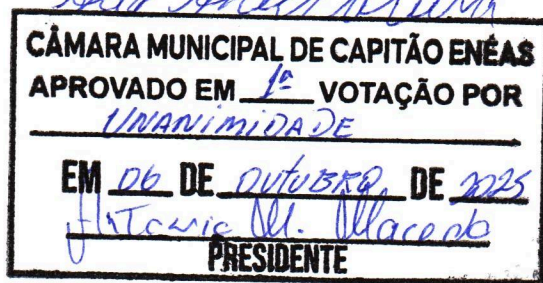 CÂMARA MUNICIPAL DE CAPITÃO ENÉAS
APROVADO EM 1ª VOTAÇÃO POR
UNANIMIDADE
EM 06 DE OUTUBRO DE 2025
Antonio M. Macedo
PRESIDENTE